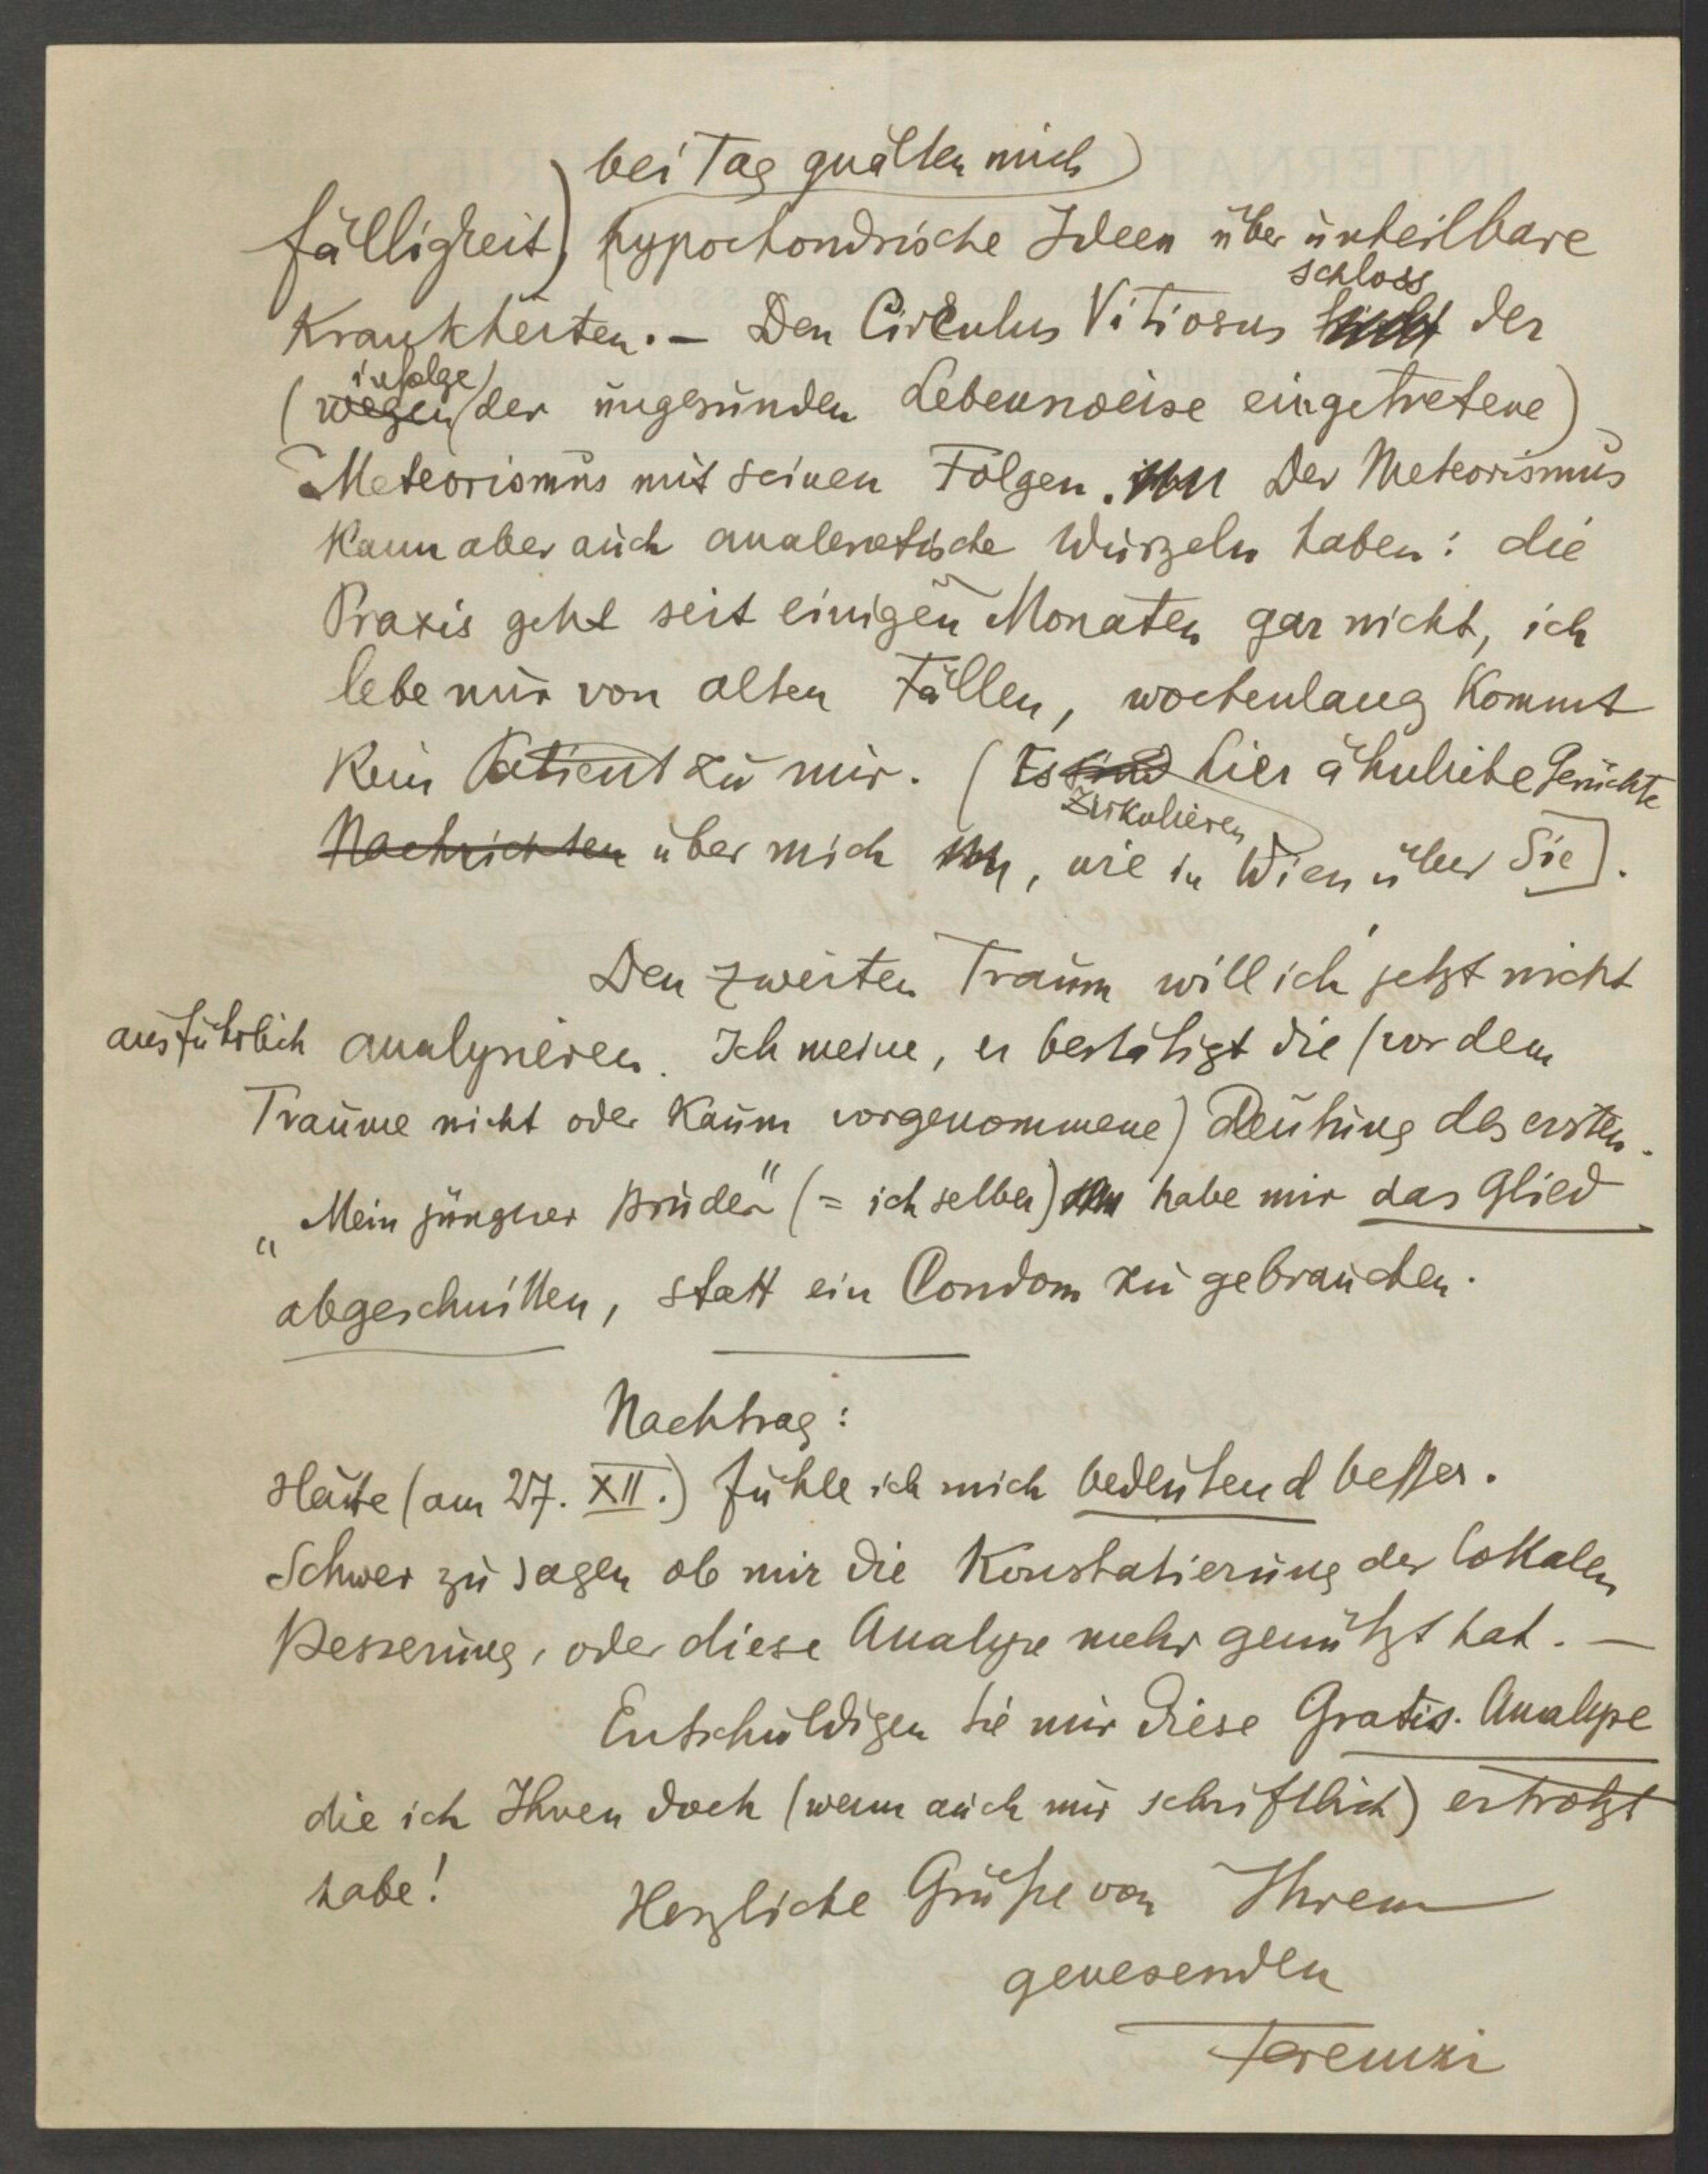 bei Tag quälten mich
fälligkeit) hypochondrische Ideen über unheilbare
schloss
Krankheiten. – Den Circulus Vitiosus der
infolge
(wegen der ungesunden Lebensweise eingetretene)
Meteorismus mit seinen Folgen. Der Meteorismus
kann aber auch analerotische Wurzeln haben: die
Praxis geht seit einigen Monaten gar nicht, ich
lebe nur von alten Fällen, wochenlang kommt
kein Patient zu mir. (Es sind hier ähnliche Gerüchte
zirkulieren
Nachrichten über mich, wie in Wien über Sie).
Den zweiten Traum will ich jetzt nicht
ausführlich analysieren. Ich meine, er bestätigt die (vor dem
Traume nicht oder kaum vorgenommene) Deutung des ersten.
„Mein jüngerer Bruder" (= ich selber) habe mir das Glied
abgeschnitten, statt ein Condom zu gebrauchen.
Nachtrag:
Heute (am 27. XII.) fühle ich mich bedeutend besser.
Schwer zu sagen ob mir die Konstatierung der lokalen
Besserung, oder diese Analyse mehr genützt hat. –
Entschuldigen Sie mir diese Gratis-Analyse
die ich Ihnen doch (wenn auch nur schriftlich) ertrotzt
habe!
Herzliche Grüße von Ihrem
genesenden
Ferenczi